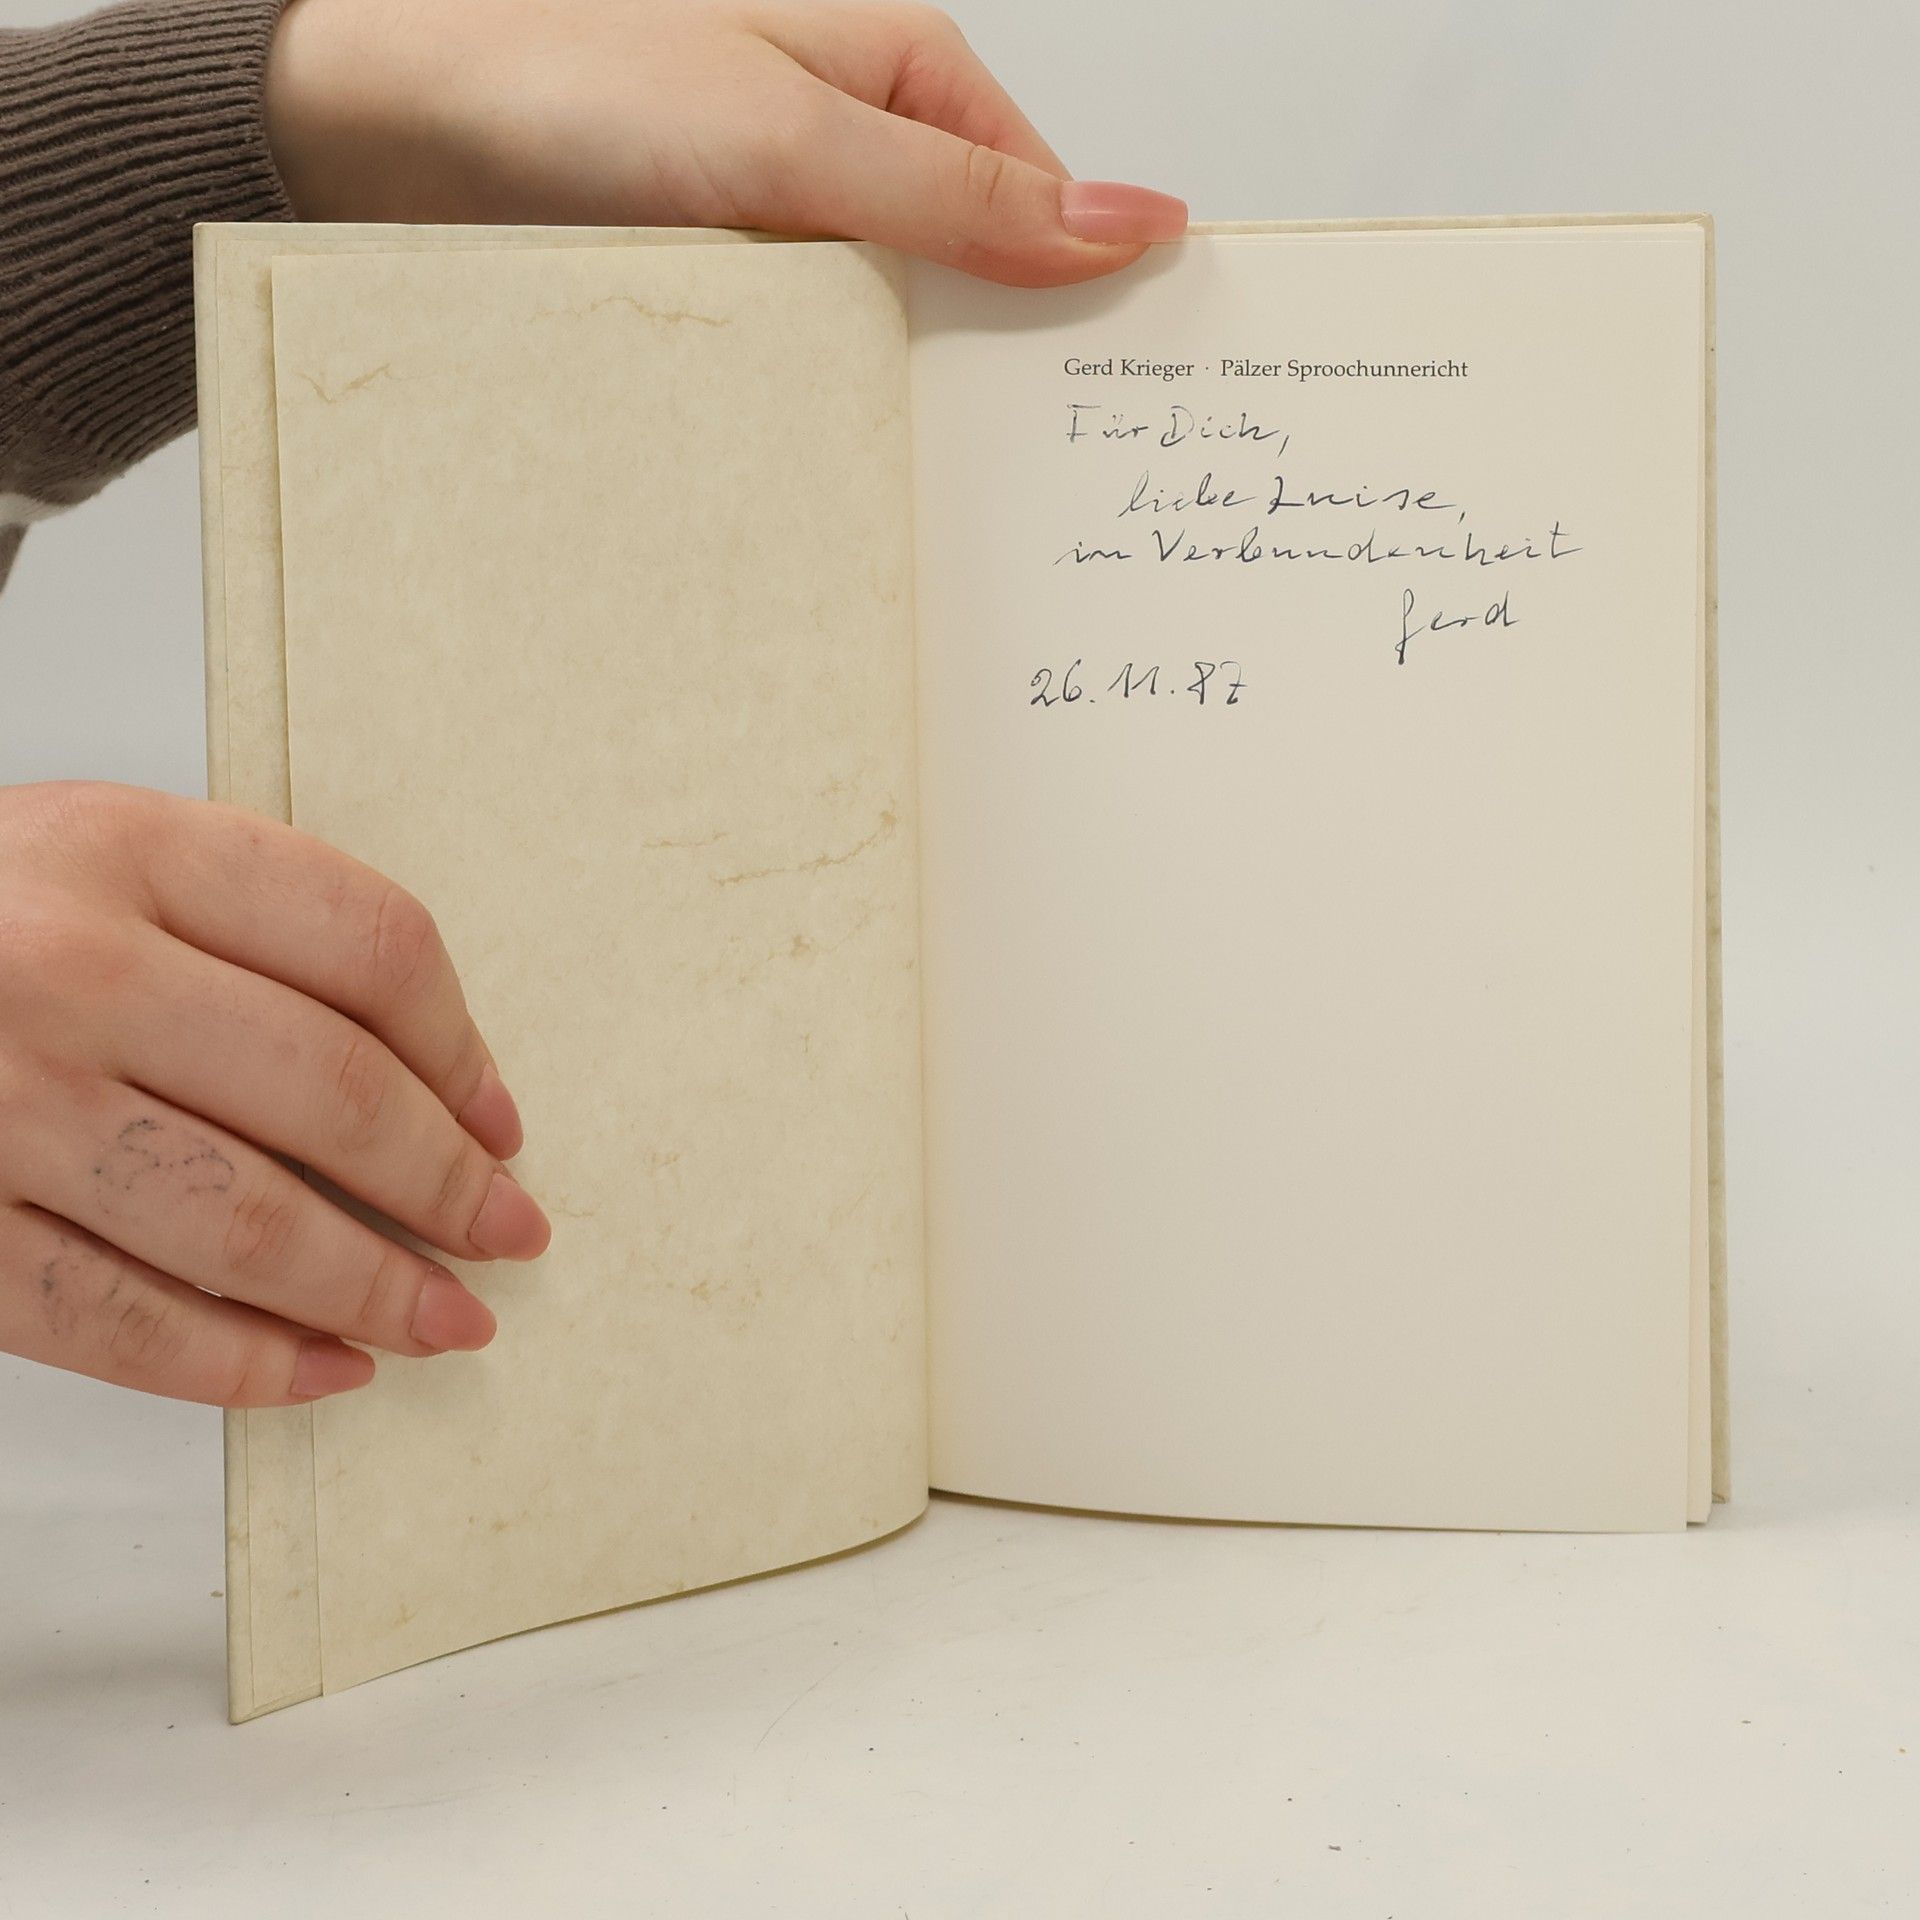 Gerd Krieger · Pälzer Sproochunnericht
Für Dich,
liebe Luise,
in Verbundenheit
Gerd
26.11.87